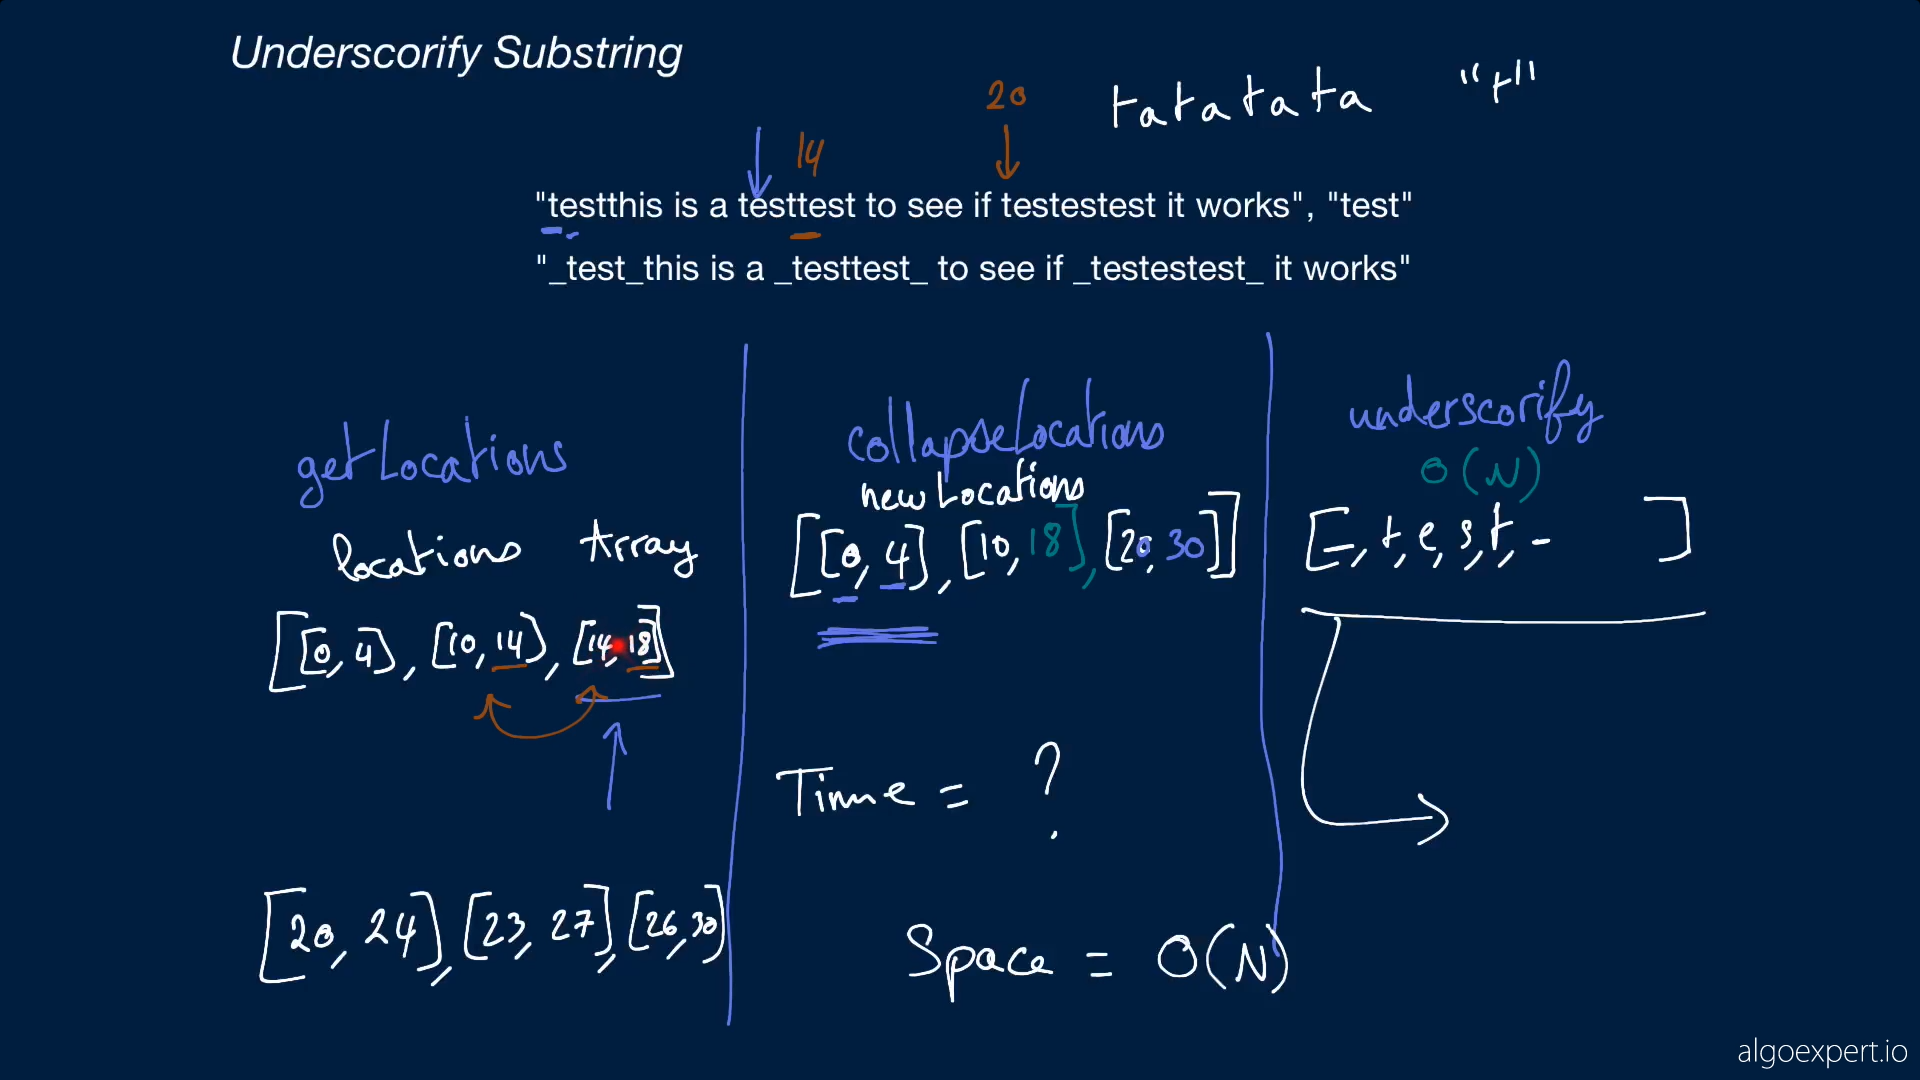 Underscorify Substring
20
tatatata "t"
14
"testthis is a testtest to see if testestest it works", "test"
"_test_this is a _testtest_ to see if _testestest_ it works"
getLocations
locations Array
[[0, 4], [10, 14], [14, 18]]
[20, 24], [23, 27], [26, 30]
collapseLocations
newLocations
[[0, 4], [10, 18], [20, 30]]
Time = ?
Space = O(N)
underscorify
O(N)
[_, t, e, s, t, _ ]
algoexpert.io